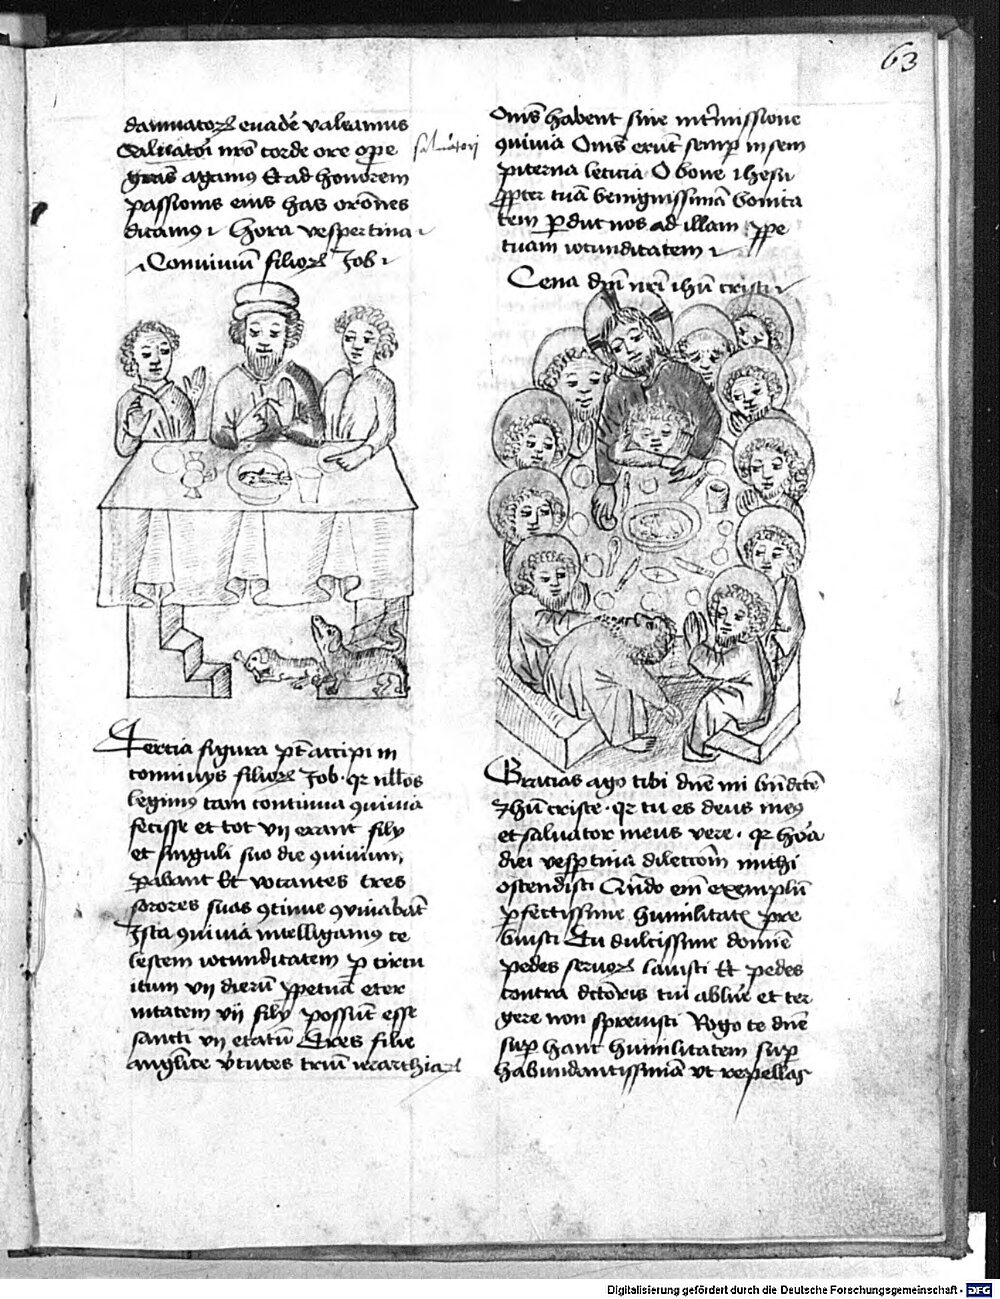 63
dampnatorꝝ euadē valeamus
Saluatori nrō corde ore oꝑe
gr̄as agamꝰ Et ad honorem
passionis eius has orōnes
dicamꝰ Hora vespertina
Conuiuiū filiorꝝ Job
Tercia figura pt̄ accipi in
conuiuys filiorꝝ Job · qꝛ illos
legimꝰ tam continua ꝯuiuia
fecisse et tot vij erant filij
et singuli suo die ꝯuiuium
ꝑabant Et vocantes tres
sorores suas ꝯtinue ꝯuiuabāt
Ista ꝯuiuia intelligamꝰ ce
lestem iocunditatem ꝑ circu
itum vij dierū ꝑpetuā eter
nitatem vij filij possūt esse
sancti vij etatū Tres filie
anglice v̄tutes triū ierarchiarꝝ
saluatori
Om̄s habent sine int̄missione
ꝯuiuia Om̄s erūt semꝑ in sem
piterna leticia O bone ihesu
ꝓpter tuā benignissimā bonita
tem ꝑduc nos ad illam ꝑpe
tuam iocunditatem
Cena dn̄i nr̄i ihū cristi
Gracias ago tibi dn̄e mi bn̄dcte
Jhū criste · qꝛ tu es deus meꝰ
et saluator meus vere · qꝛ hora
diei vesꝑtina dilectōm michi
ostendisti Qn̄do em̄ exemplū
ꝑfectissime humilitatis pre
buisti Tu dulcissime domine
pedes seruorꝝ lauisti Et pedes
tui abluē et ter
gere non spreuisti Rogo te dn̄e
suꝑ hanc humilitatem suꝑ
habundantissimā vt repellas
Digitalisierung gefördert durch die Deutsche Forschungsgemeinschaft - DFG